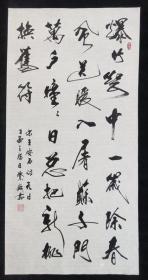 爆竹聲中一歲除春
風送暖入屠蘇千門
萬戶曈々日总把新桃
換舊符
宋王安石詩元日